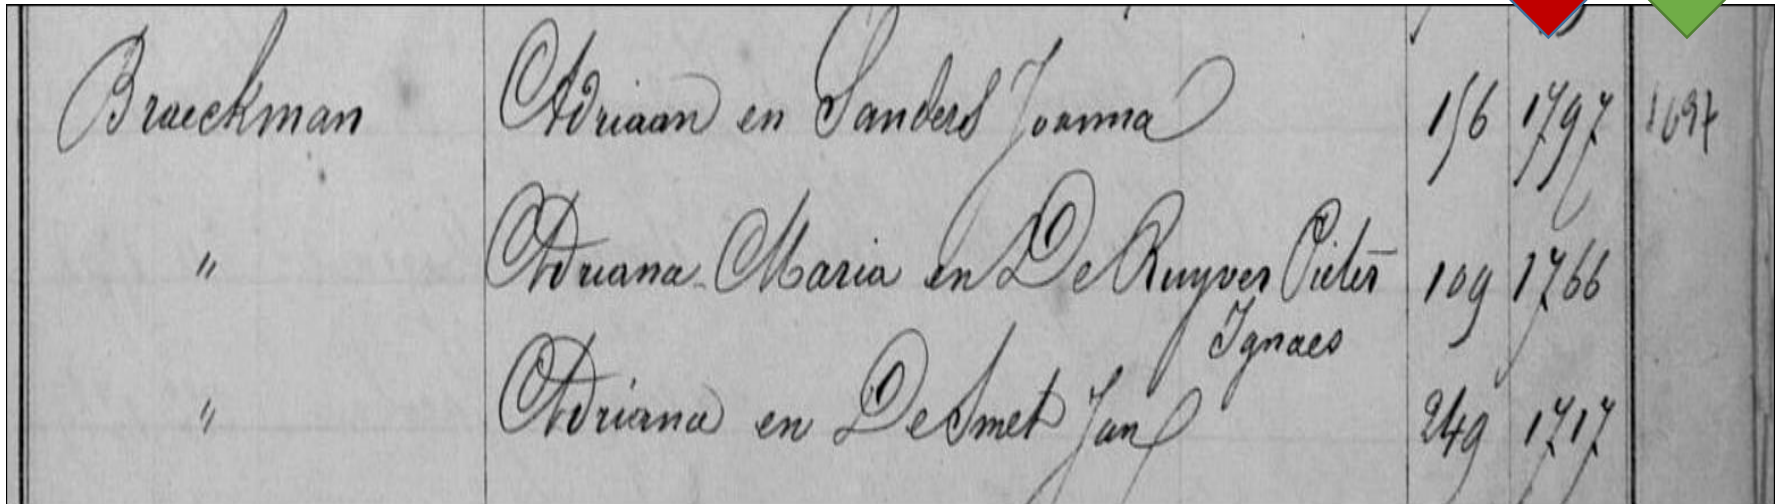 Braeckman Adriaan en Sanders Joanna 156 1797 1697
" Adriana Maria en De Ruyver Pieter 109 1766
Ignaes
" Adriana en De Smet Jan 249 1717